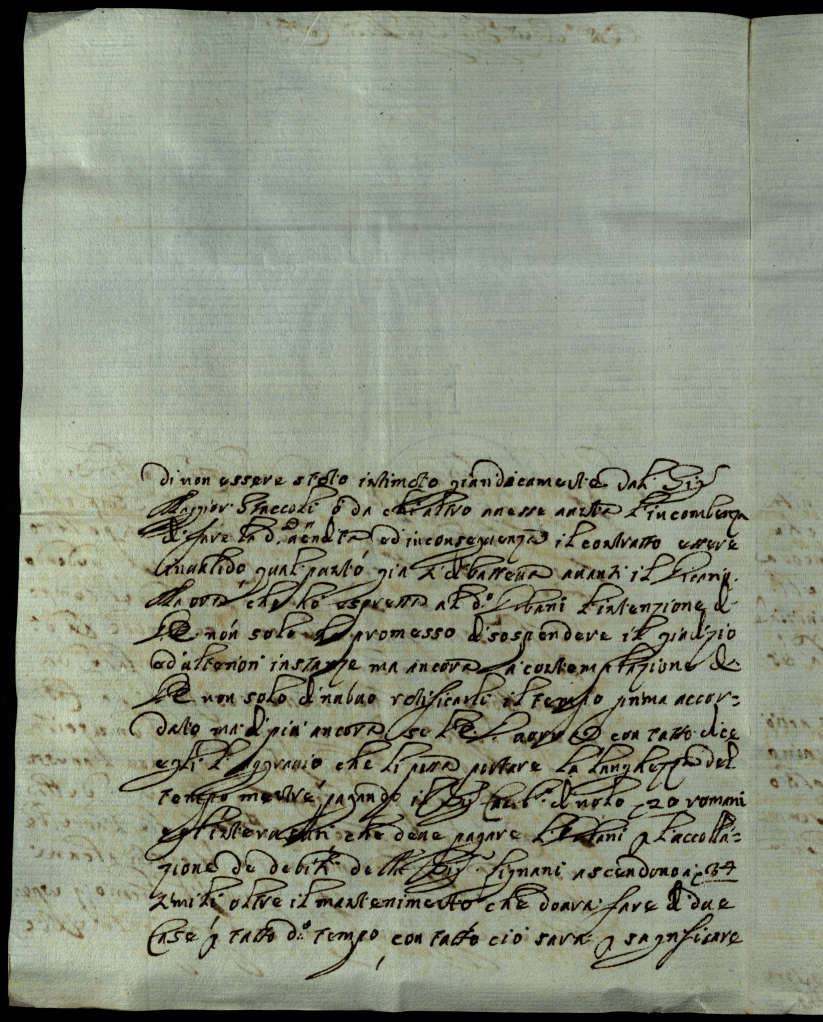 di non essere stato intimato giuridicamente dal Sig.
Maggior Staccoli o da chi altro avesse avuta l'incombenza
di fare la d.ª vendita ed in conseguenza il contratto essere
invalido qual punto già si dibatteva avanti il Vicario.
Ma ora che hò espressa al d.º Urbani l'intenzione di
V.E. non solo hà promesso di sospendere il giudizio
ad ulteriori instanze ma ancora a contemplazione di
V.E. non solo di nuovo ratificarli il tempo prima accor=
dato ma di più ancora se V.E. vorrà con tutto dice
egli l'aggravio che li possa portare la lunghezza del
tempo mentre pagando il Sig. di nolo 20 romani
e gl'interusurii che deve pagare l'Urbani p l'accolla=
zione de debiti delli Sig. Signani ascendono a 34
simili oltre il mantenimento che dovrà fare di due
Case p tutto d.º tempo, con tutto ciò sarà p sagrificare